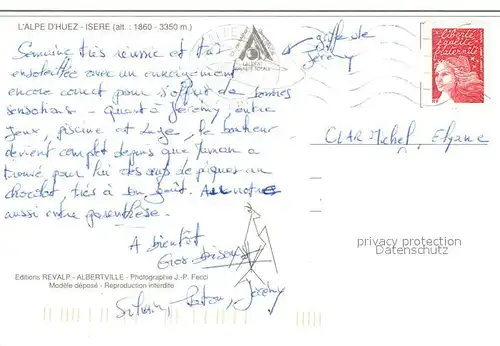 L'ALPE D'HUEZ - ISERE (alt. : 1860 - 3350 m.)
Semaine très réussie et
ensoleillée avec un enneigement
encore correct pour s'offrir de bonnes
sensations - Quant à Jérémy, entre
jeux, piscine et luge, le bonheur
devient complet depuis que Maman a
trouvé pour lui des œufs de pâques au
chocolat, très à son goût. Au notre
aussi entre parenthèse.
A bientôt
Gros bisous
griffe de
Jérémy
Liberté
égalité
fraternité
RF
CLAR Michel, Elyane
privacy protection
Datenschutz
Editions REVALP - ALBERTVILLE - Photographie J.-P. Fecci
Modèle déposé - Reproduction interdite
Sylvain, Jérémy